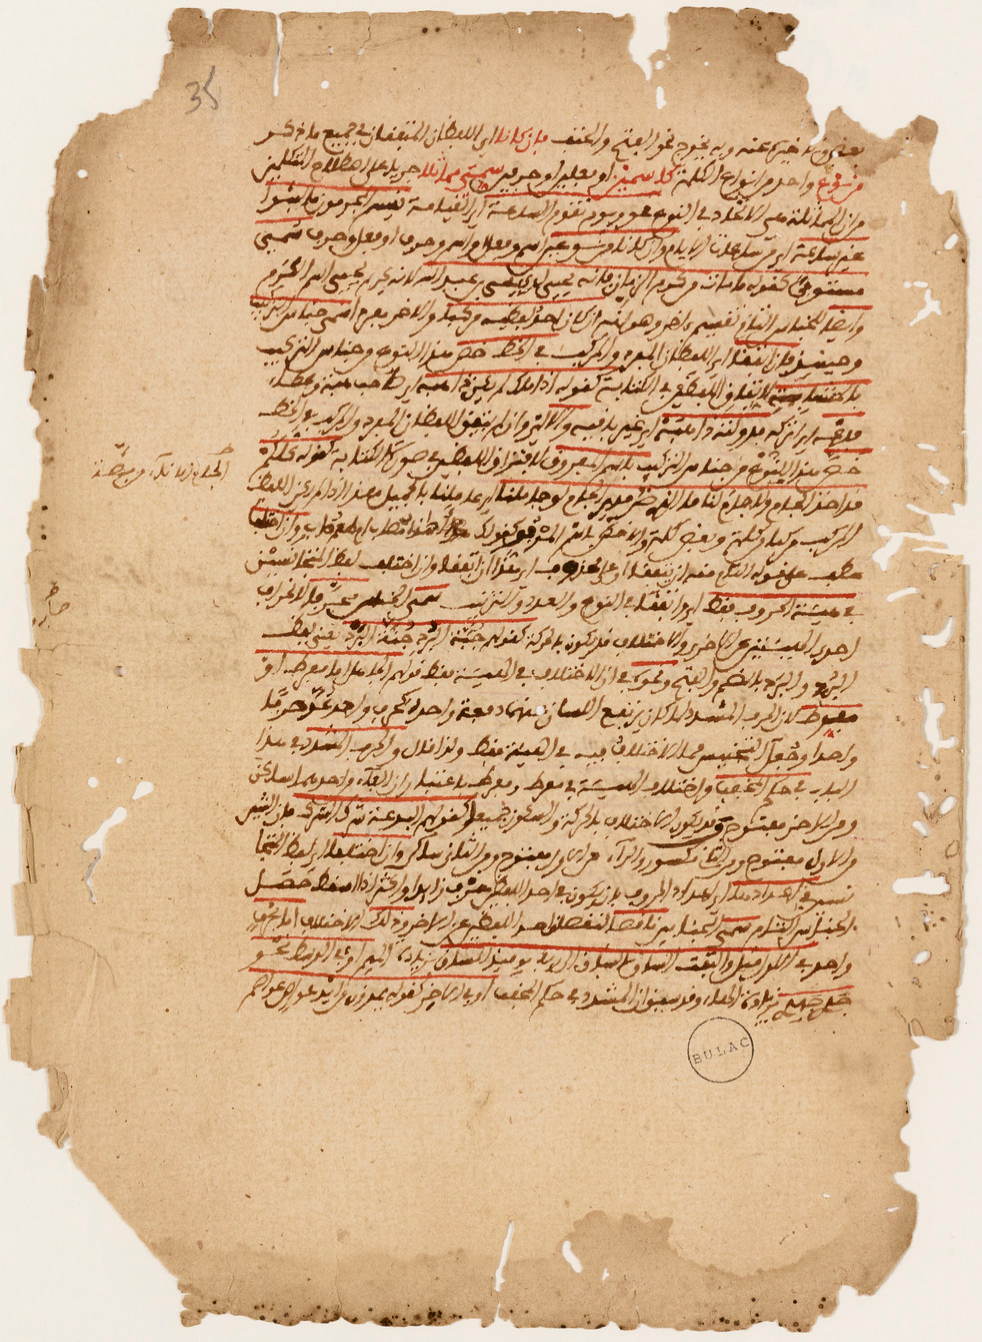 وما اختير عنه وبه يخرج نحو الفتح والحتف فإن كانا اي اللفظان المتفقان في جميع ما ذكر
من نوع واحد من انواع الكلمة كاسمين او فعلين او حرفين سمي متماثلا جريا على اصطلاح المتكلمين
من ان المماثلة هي الاتحاد في النوع نحو ويوم تقوم الساعة اي القيامة يقسم المجرمون ما لبثوا
غير ساعة اي من ساعات الايام وان كانا من نوعين اسم وفعل او اسم وحرف او فعل وحرف سمي
مستوفى كقوله ما مات من كرم الزمان فانه يحيى لدى يحيى بن عبد الله لانه كريم يحيي اسم الكرم
وايضا للجناس التام تقسيم اخر وهو انه ان كان احد لفظيه مركبا والاخر مفردا سمي جناس التركيب
وحينئذ فان اتفقا اي اللفظان المفرد والمركب في الخط خص هذا النوع من جناس التركيب
لاتفاق اللفظين في الكتابة كقوله اذا ملك لم يكن ذا هبة اي صاحب هبة وعطاء
فدعه اي اتركه فدولته ذاهبة اي غير باقية والا اي وان لم يتفق اللفظان المفرد والمركب في الخط
خص هذا النوع من جناس التركيب باسم المفروق لافتراق اللفظين في صورة الكتابة كقوله كلكم
قد اخذ الجام ولا جام لنا ما الذي ضر مدير الجام لو جاملنا اي عاملنا بالجميل هذا اذا لم يكن اللفظ
المركب مركبا من كلمة وبعض كلمة والا خص باسم المرفو كقولك اهذا مصاب ام طعم صاب وان اختلفا
عطف على قوله والتام منه ان يتفقا او على محذوف اي هذا ان اتفقا وان اختلف لفظا المتجانسين
في هيئة الحروف فقط اي واتفقا في النوع والعدد والترتيب سمي التجنيس محرفا لانحراف
احدى الهيئتين عن الاخرى والاختلاف قد يكون بالحركة كقولهم جبة البرد جنة البرد يعني لفظ
البرد والبرد بالضم والفتح ونحوه في ان الاختلاف في الهيئة فقط قولهم الجاهل اما مفرط او
مفرط لان الحرف المشدد لما كان يرتفع اللسان عنهما دفعة واحدة كحرف واحد عد حرفا
واحدا وجعل التجنيس مما الاختلاف فيه في الهيئة فقط ولذا قال والحرف المشدد في هذا
الباب في حكم المخفف واختلاف الهيئة في مفرط ومفرط باعتبار ان الفاء من احدهما ساكن
ومن الاخر مفتوح وقد يكون الاختلاف بالحركة والسكون جميعا كقولهم البدعة شرك الشرك فان الشين
من الاول مفتوح ومن الثاني مكسور والراء من الاول مفتوح ومن الثاني ساكن وان اختلفا اي لفظا المتجا
نسين في اعدادها اي اعداد الحروف بان يكون في احد اللفظين حرف زايد او اكثر اذا اسقط حصل
الجناس التام سمي الجناس ناقصا لنقصان احد اللفظين عن الاخر وذلك الاختلاف اما بحرف
واحد في الاول مثل والتفت الساق بالساق الى ربك يومئذ المساق بزيادة الميم او في الوسط نحو
جدي جهدي بزيادة الهاء وقد سبق ان المشدد في حكم المخفف او في الاخر كقوله يمدون من ايد عواص عواصم
BULAC